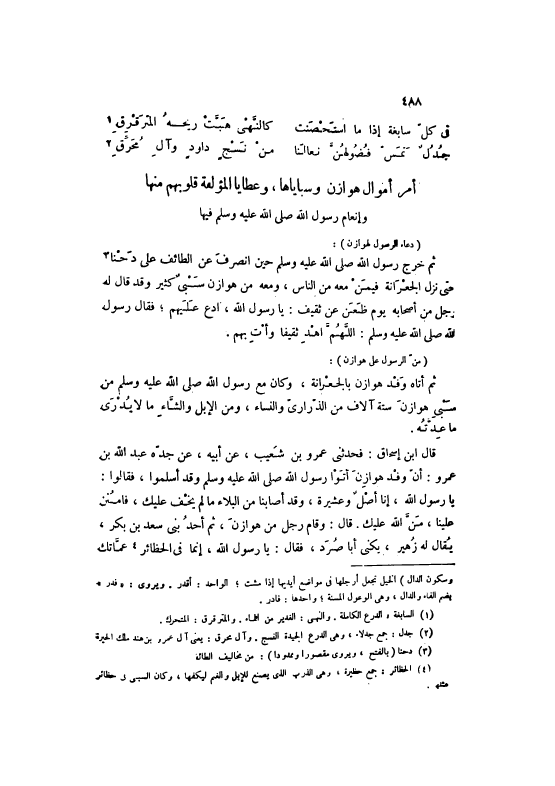 ٤٨٨
فى كلّ سابغة إذا ما استَحْصَنَت كالنَّهْى هَبَّتْ ريحُه المترقرق١
جُدُلٌ تَمَسّ فُضُولُهُنَّ نعالنا مِنْ نَسْجِ داودٍ وآلِ مُحَرّقِ٢
أمر أموال هوازن وسباياها ، وعطايا المؤلفة قلوبهم منها
وإنعام رسول الله صلى الله عليه وسلم فيها
( دعاء الرسول لهوازن ) :
ثم خرج رسول الله صلى الله عليه وسلم حين انصرف عن الطائف على دَحْنا٣
حتى نزل الجِعْرَانة فيمَنْ معه من الناس ، ومعه من هوازن سَبْىٌ كثير وقد قال له
رجل من أصحابه يوم ظَعَن عن ثقيف : يا رسول الله ، ادع عليهم ؛ فقال رسول
الله صلى الله عليه وسلم : اللَّهُمَّ اهْدِ ثقيفا وأْتِ بهم .
( منّ الرسول على هوازن ) :
ثم أتاه وَفْد هوازن بالجِعْرانة ، وكان مع رسول الله صلى الله عليه وسلم من
سَبْىِ هوازنَ ستة آلاف من الذّرارىّ والنساء ، ومن الإبل والشَّاءِ ما لا يُدْرَى
ما عِدّتُه .
قال ابن إسحاق : فحدثنى عمرو بن شُعَيب ، عن أبيه ، عن جدّه عبد الله بن
عمرو : أنّ وفْد هوازِنَ أتَوْا رسول الله صلى الله عليه وسلم وقد أسلموا ، فقالوا :
يا رسول الله ، إنا أصْلٌ وعشيرة ، وقد أصابنا من البلاء ما لم يَخْف عليك ، فامْنُن
علينا ، مَنَّ الله عليك . قال : وقام رجل من هوازنَ ، ثم أحدُ بنى سعد بن بكر ،
يُقال له زُهير ، يكنى أبا صُرَد ، فقال : يا رسول الله ، إنما فى الحظائر٤ عمَّاتك
وسكون الدال ) الخيل تجعل أرجلها فى مواضع أيديها إذا مشت ؛ الواحد : أقدر . ويروى : « فدر »
بضم الفاء والدال ، وهى الوعول المسنة ؛ واحدها : فادر .
(١) السابغة : الدرع الكاملة . والنهى : الغدير من الماء . والمترقرق : المتحرك .
(٢) جدل : جمع جدلاء ، وهى الدرع الجيدة النسج . وآل محرق : يعنى آل عمرو بن هند ملك الحيرة
(٣) دحنا ( بالفتح ، ويروى مقصورا وممدودا ) : من مخاليف الطائف
(٤) الحظائر : جمع حظيرة ، وهى الزرب الذى يصنع للإبل والغنم ليكفها ، وكان السبى فى حظائر
مثلها .